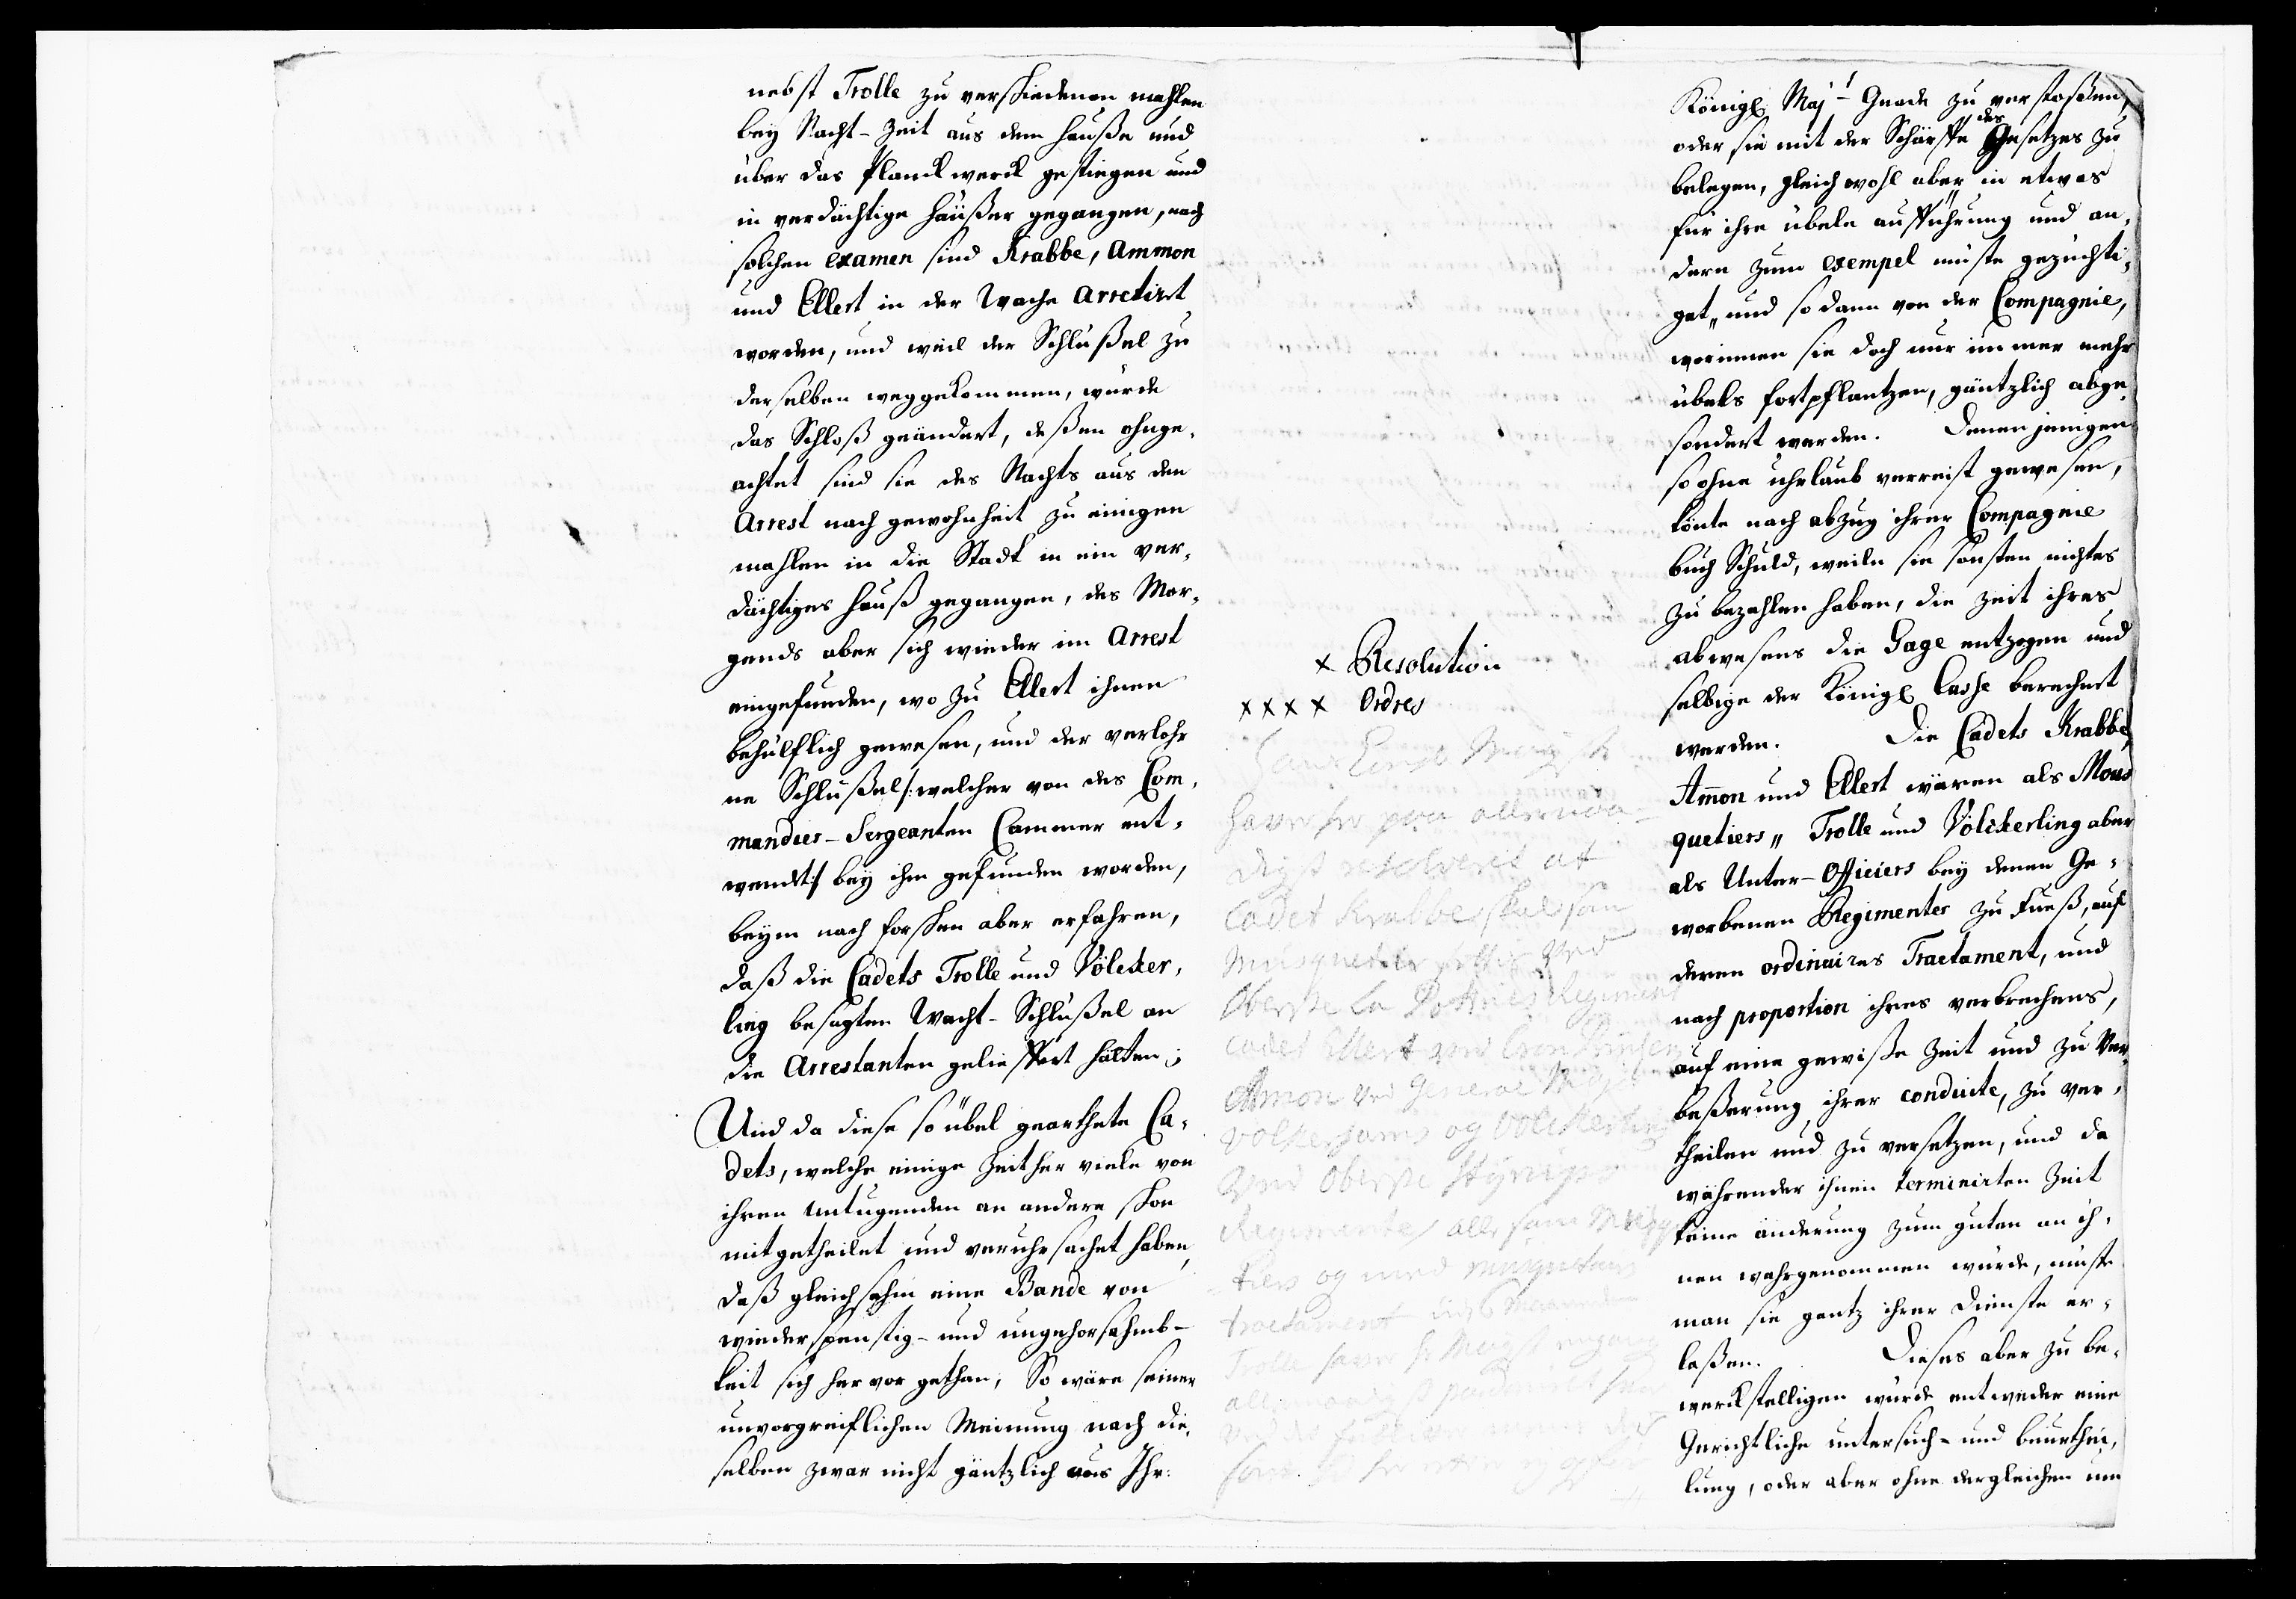 nebst Trolle zu verschiedenen mahlen
bey Nacht-Zeit aus dem Hauße und
über das Planckwerck gestiegen und
in verdächtige Häußer gegangen, nach
solchen examen sind Krabbe, Ammon
und Ellert in der Wache Arretirt
worden, und weil der Schlüßel zu
derselben weggekommen, wurde
das Schloß geändert, deßen ohnge,
achtet sind sie des Nachts aus den
Arrest nach gewohnheit zu einigen
mahlen in die Stadt in ein ver,
dächtiges Hauß gegangen, des Mor,
gends aber sich wieder im Arrest
eingefunden, wo zu Ellert ihnen
behülfflich gewesen, und der verlohr
ne Schlüßel /: welcher von des Com,
mandier-Sergeanten Cammer ent,
wendt :/ bey ihm gefunden worden,
beym nach forschen aber erfahren,
daß die Cadets Trolle und Völcker,
ling besagten Wacht-Schlüßel an
die Arrestanten geliefert hätten;
Und da diese so übel gearthete Ca,
dets, welche einige Zeit her viele von
ihren untugenden an andere schon
mitgetheilet und veruhrsachet haben,
daß gleichsahm eine Bande von
wiederspenstig- und ungehorsahmb-
keit sich hervor gethan, So wäre seiner
unvorgreiflichen Meinung nach die,
selben zwar nicht gäntzlich aus Ihr:
x Resolution
xxxx Ordres
Hans Kongl May
haver paa allernaa-
digst resolveret at
Cadet Krabbe skal som
Musqueteer ved
Oberste La Regiment
Cadet Ellert ved
Ammon ved General Major
og Völckerling
ved Oberste
Regimenter alle som Musqve
tiers og med musqvetairs
tractament
Trolle haver
Königl Maj.t Gnade zu verstoßen,
oder sie mit der Schärffe des Gesetzes zu
belegen, gleichwohl aber in etwas
für ihre übele aufführung und an,
dern zum exempel müste gezüchti,
get, und sodann von der Compagnie,
worinnen sie doch nur immer mehr
übels fortpflantzen, gäntzlich abge
sondert werden. Denen jenigen
so ohne uhrlaub verreist gewesen,
könte nach abzug ihrer Compagnie
buch Schuld, weiln sie sonsten nichtes
zu bezahlen haben, die Zeit ihres
abwesens die Gage entzogen und
selbige der Königl Casse berechnet
werden. Die Cadets Krabbe,
Amon und Ellert wären als Mous
quetiers, Trolle und Völckerling aber
als Unter-Officiers bey denen Ge,
worbenen Regimenter zu Fueß, auf
deren ordinaires Tractament, und
nach proportion ihres verbrechens,
auf eine gewiße Zeit und zu Ver,
beßerung ihrer conduite, zu ver,
theilen und zu versetzen, und da
währender ihnen terminirten Zeit
keine änderung zum guten an ih,
nen wahrgenommen würde, müste
man sie gantz ihrer Dienste er,
laßen. Dieses aber zu be,
werckstelligen würde entweder eine
Gerichtliche untersuch- und beurthei,
lung, oder aber ohne dergleichen um